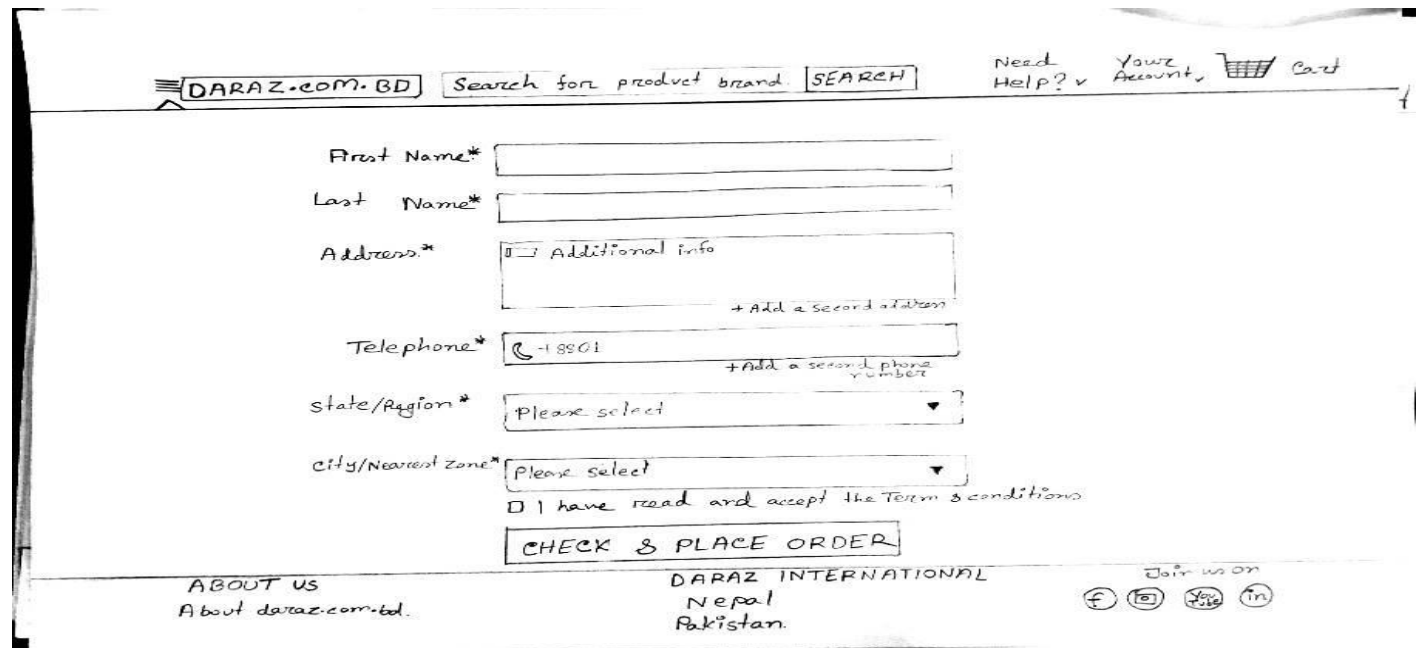 DARAZ.COM.BD Search for product brand. SEARCH Need Help? Your Account Cart
First Name*
Last Name*
Address* Additional info
+ Add a second address
Telephone* +8801
+Add a second phone number
State/Region* Please select
City/Nearest Zone* Please select
I have read and accept the Term & conditions
CHECK & PLACE ORDER
ABOUT US DARAZ INTERNATIONAL Join us on
About daraz.com.bd. Nepal f You Tube in
Pakistan.